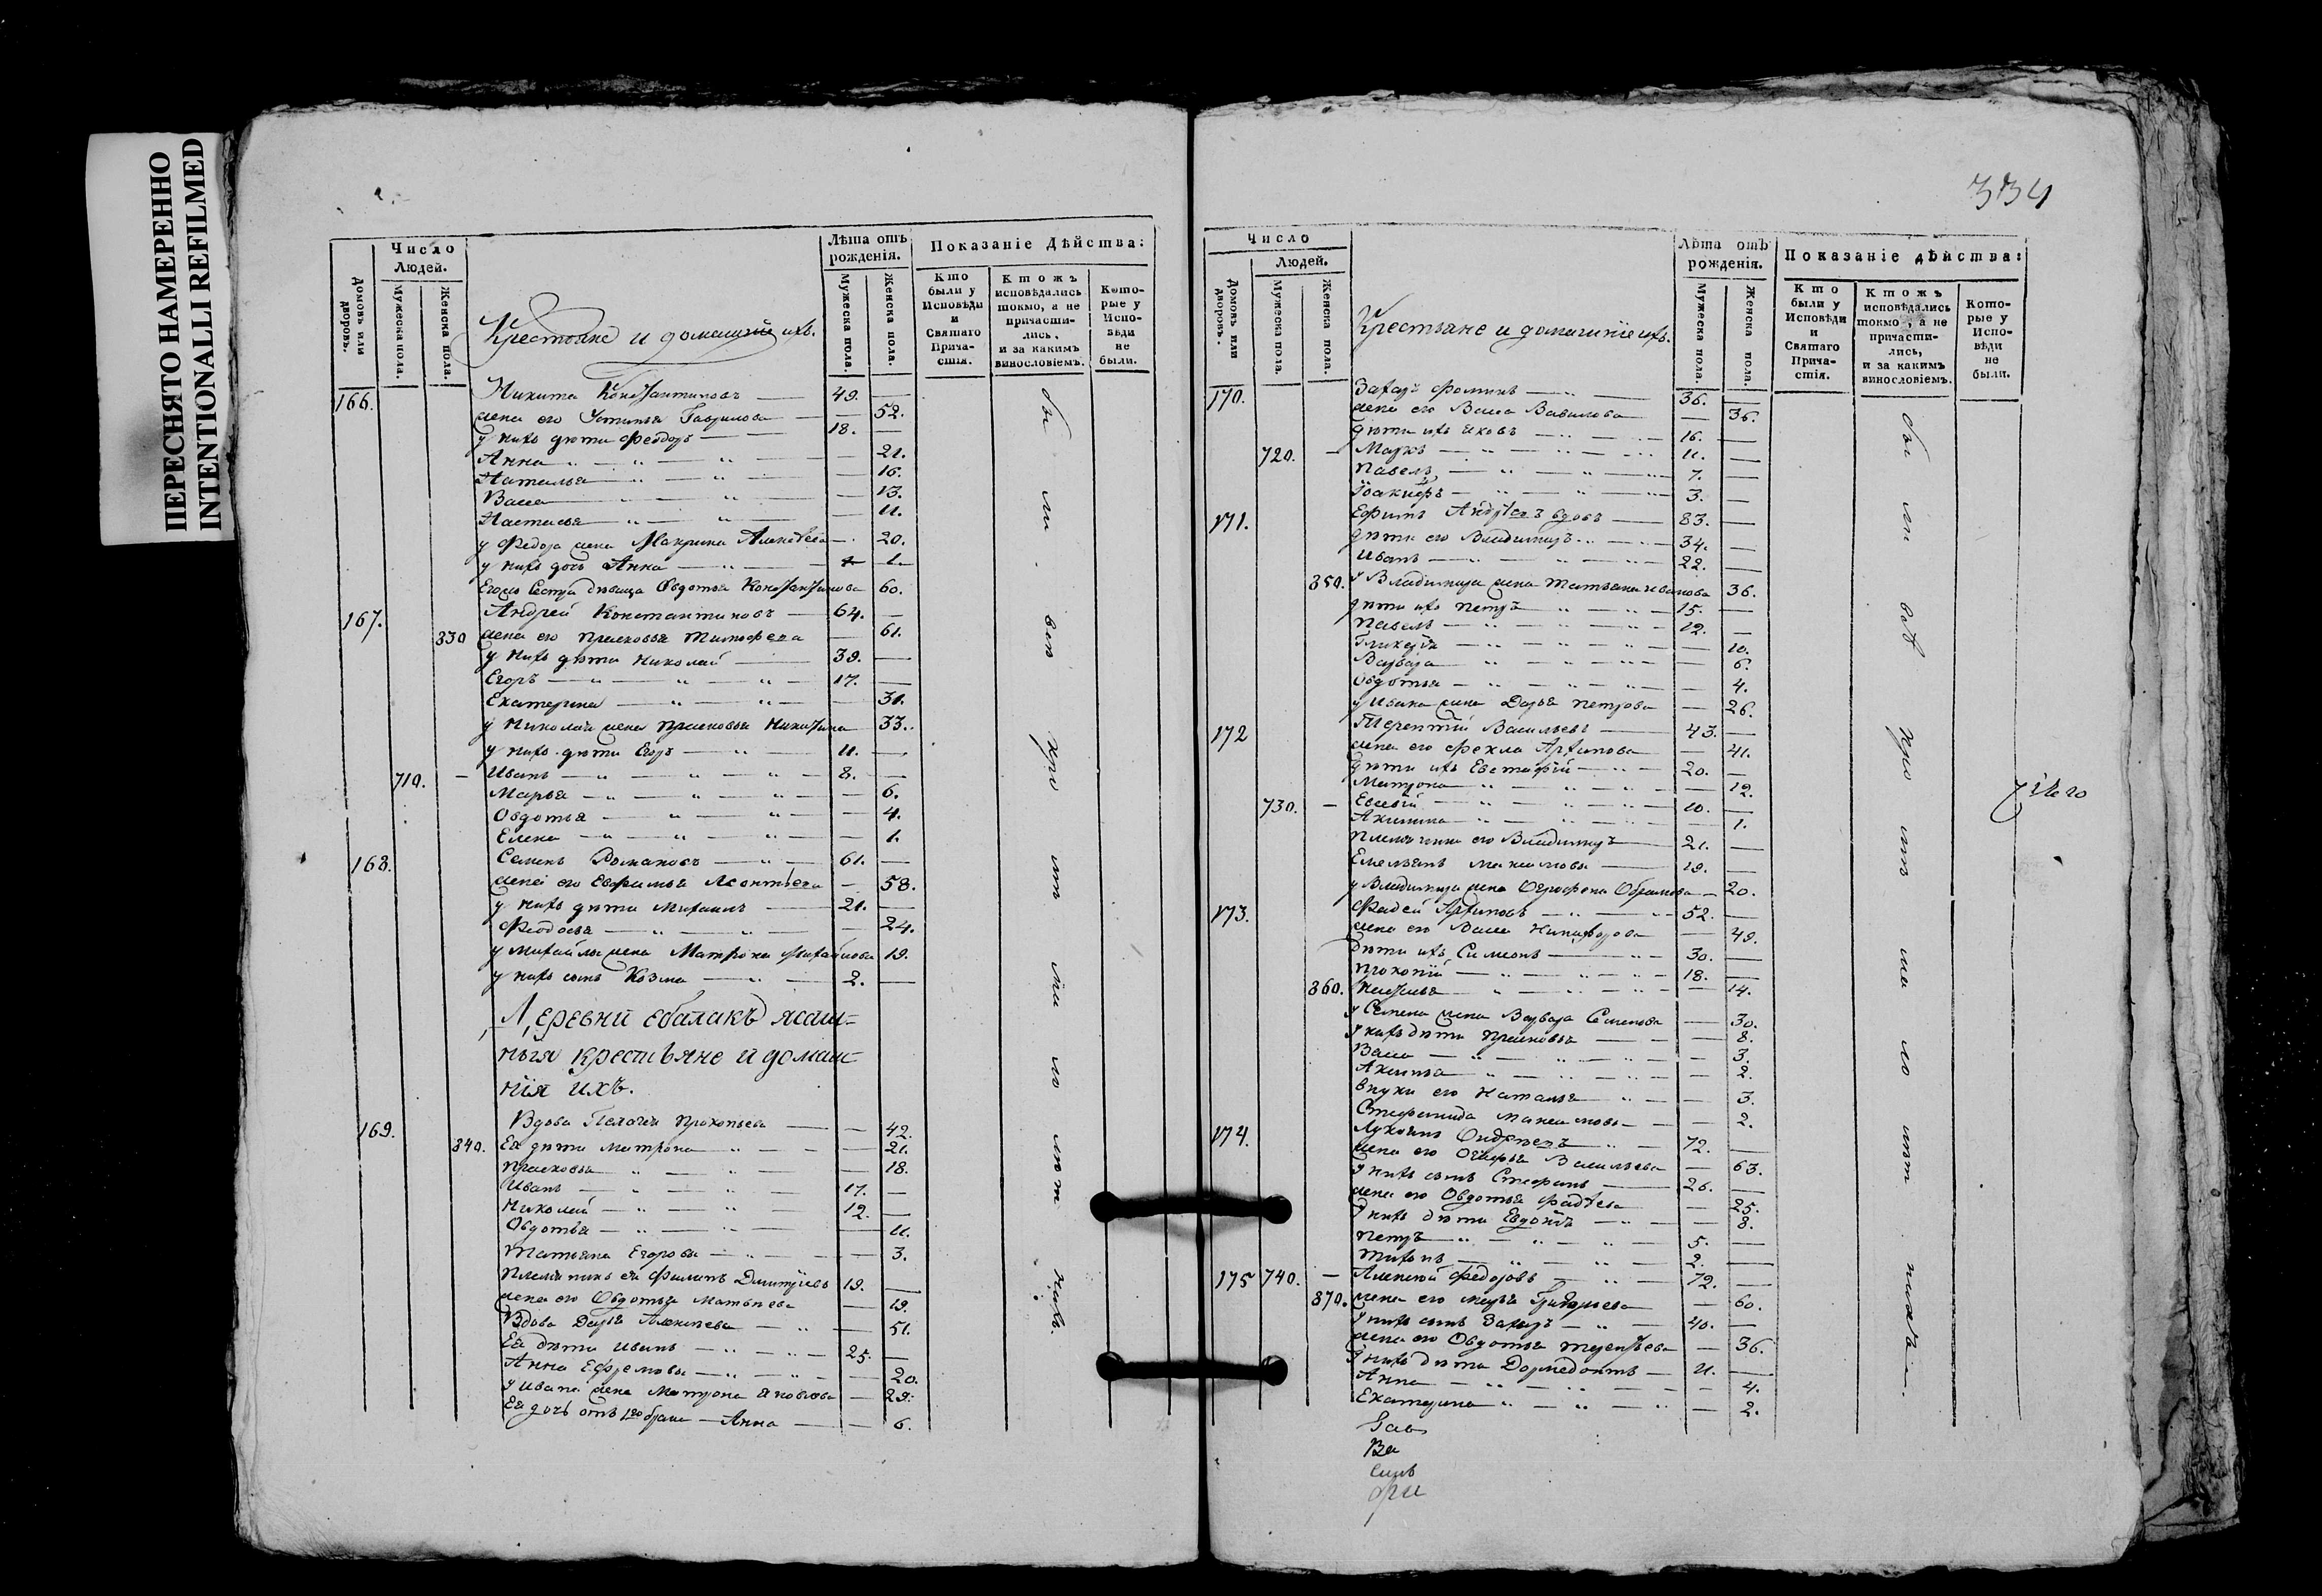 ПЕРЕСНЯТО НАМЕРЕННО
INTENTIONALLI REFILMED
Число
Людей.
Домовъ или дворовъ.
Мужеска пола.
Женска пола.
Крестьяне и домашнїе ихъ.
Лѣта отъ
рожденія.
Мужеска пола.
Женска пола.
Показаніе Дѣйства:
Кто были у Исповѣди и Святаго Прича-стія.
Ктожъ исповѣдались токмо, а не причасти-лись, и за какимъ винословіемъ.
Кото-рые у Испо-вѣди не были.
166. Никита Константиновъ 49.
жена его Устинья Гаврилова 52.
у нихъ дѣти Феодоръ 18.
Анна 21.
Наталья 16.
Васса 13.
Настасья 11.
у Федора жена Макрина Алексѣева 20.
у нихъ дочь Анна 1.
Сестра дѣвица Овдотья Константинова 60.
167. Андрей Константиновъ 64.
830 жена его Прасковья Тимофеева 61.
у нихъ дѣти Николай 39.
Егоръ 17.
Екатерина 31.
у Николая жена Прасковья Никитина 33.
у нихъ дѣти Егоръ 11.
710. Иванъ 8.
Марья 6.
Овдотья 4.
Елена 1.
168. Семенъ Романовъ 61.
жена его Евфимья Леонтьева 58.
у нихъ дѣти Михаилъ 21.
Феодосья 24.
у Михайлы жена Матрона Михайлова 19.
у нихъ сынъ Козма 2.
Деревни Ебалакъ ясаш-
ныя крестьяне и домаш-
нїя ихъ.
169. Вдова Пелагея Прокопьева 42.
840. Ея дѣти Матрона 21.
Прасковья 18.
Иванъ 17.
Николай 12.
Овдотья 11.
Татьяна Егорова 3.
Племянникъ ея Филипъ Дмитрїевъ 19.
жена его Овдотья Матвѣева 19.
Вдова Дарья Алексѣева 51.
Ея дѣти Иванъ 25.
Анна Ефремова 20.
у Ивана жена Матрона Яковлева 29.
Ея дочь отъ 1го брака Анна 6.
334
Число
Людей.
Домовъ или дворовъ.
Мужеска пола.
Женска пола.
Крестьяне и домашнїе ихъ.
Лѣта отъ
рожденія.
Мужеска пола.
Женска пола.
Показаніе дѣйства:
Кто были у Исповѣди и Святаго Прича-стія.
Ктожъ исповѣдались токмо, а не причасти-лись, и за какимъ винословіемъ.
Кото-рые у Испо-вѣди не были.
170. Захаръ Фоминъ 36.
жена его Васса Вавилова 36.
дѣти ихъ Яковъ 16.
720. Маркъ 11.
Павелъ 7.
3.
171. Ефимъ вдовъ 83.
дѣти его Владимиръ 34.
Иванъ 22.
850. у Владимира жена Татьяна Иванова 36.
дѣти ихъ Петръ 15.
Павелъ 12.
Гликерїя 10.
Варвара 6.
Овдотья 4.
у Ивана жена Дарья Петрова 26.
172 Терентїй Васильевъ 43.
жена его Фекла Архипова 41.
дѣти ихъ Евстафїй 20.
Матрона 12.
730. Евсевїй 10.
Акилина 1.
Племянники его Владимиръ 21.
Емельянъ Максимовы 19.
у Владимира жена Огрофена Обрамова 20.
173. Фадей Архиповъ 52.
жена его Васса Никифорова 49.
дѣти ихъ Симеонъ 30.
Прокопїй 18.
860. 14.
у Семена жена Варвара Семенова 30.
у нихъ дѣти Прасковья 8.
Васса 3.
Аксинья 2.
внуки его Наталья 3.
Стефанида Максимовы 2.
174. Лукоянъ Ондреевъ 72.
жена его Огафья Васильева 63.
у нихъ сынъ Стефанъ 26.
жена его Овдотья Фадѣева 25.
у нихъ дѣти 8.
Петръ 5.
Тихонъ 2.
175 740. Алексей Федоровъ 72.
870. жена его Марья Григорьева 60.
у нихъ сынъ Захаръ 40.
жена его Овдотья Терентьева 36.
у нихъ дѣти Дормедонтъ 11.
Анна 4.
Екатерина 2.